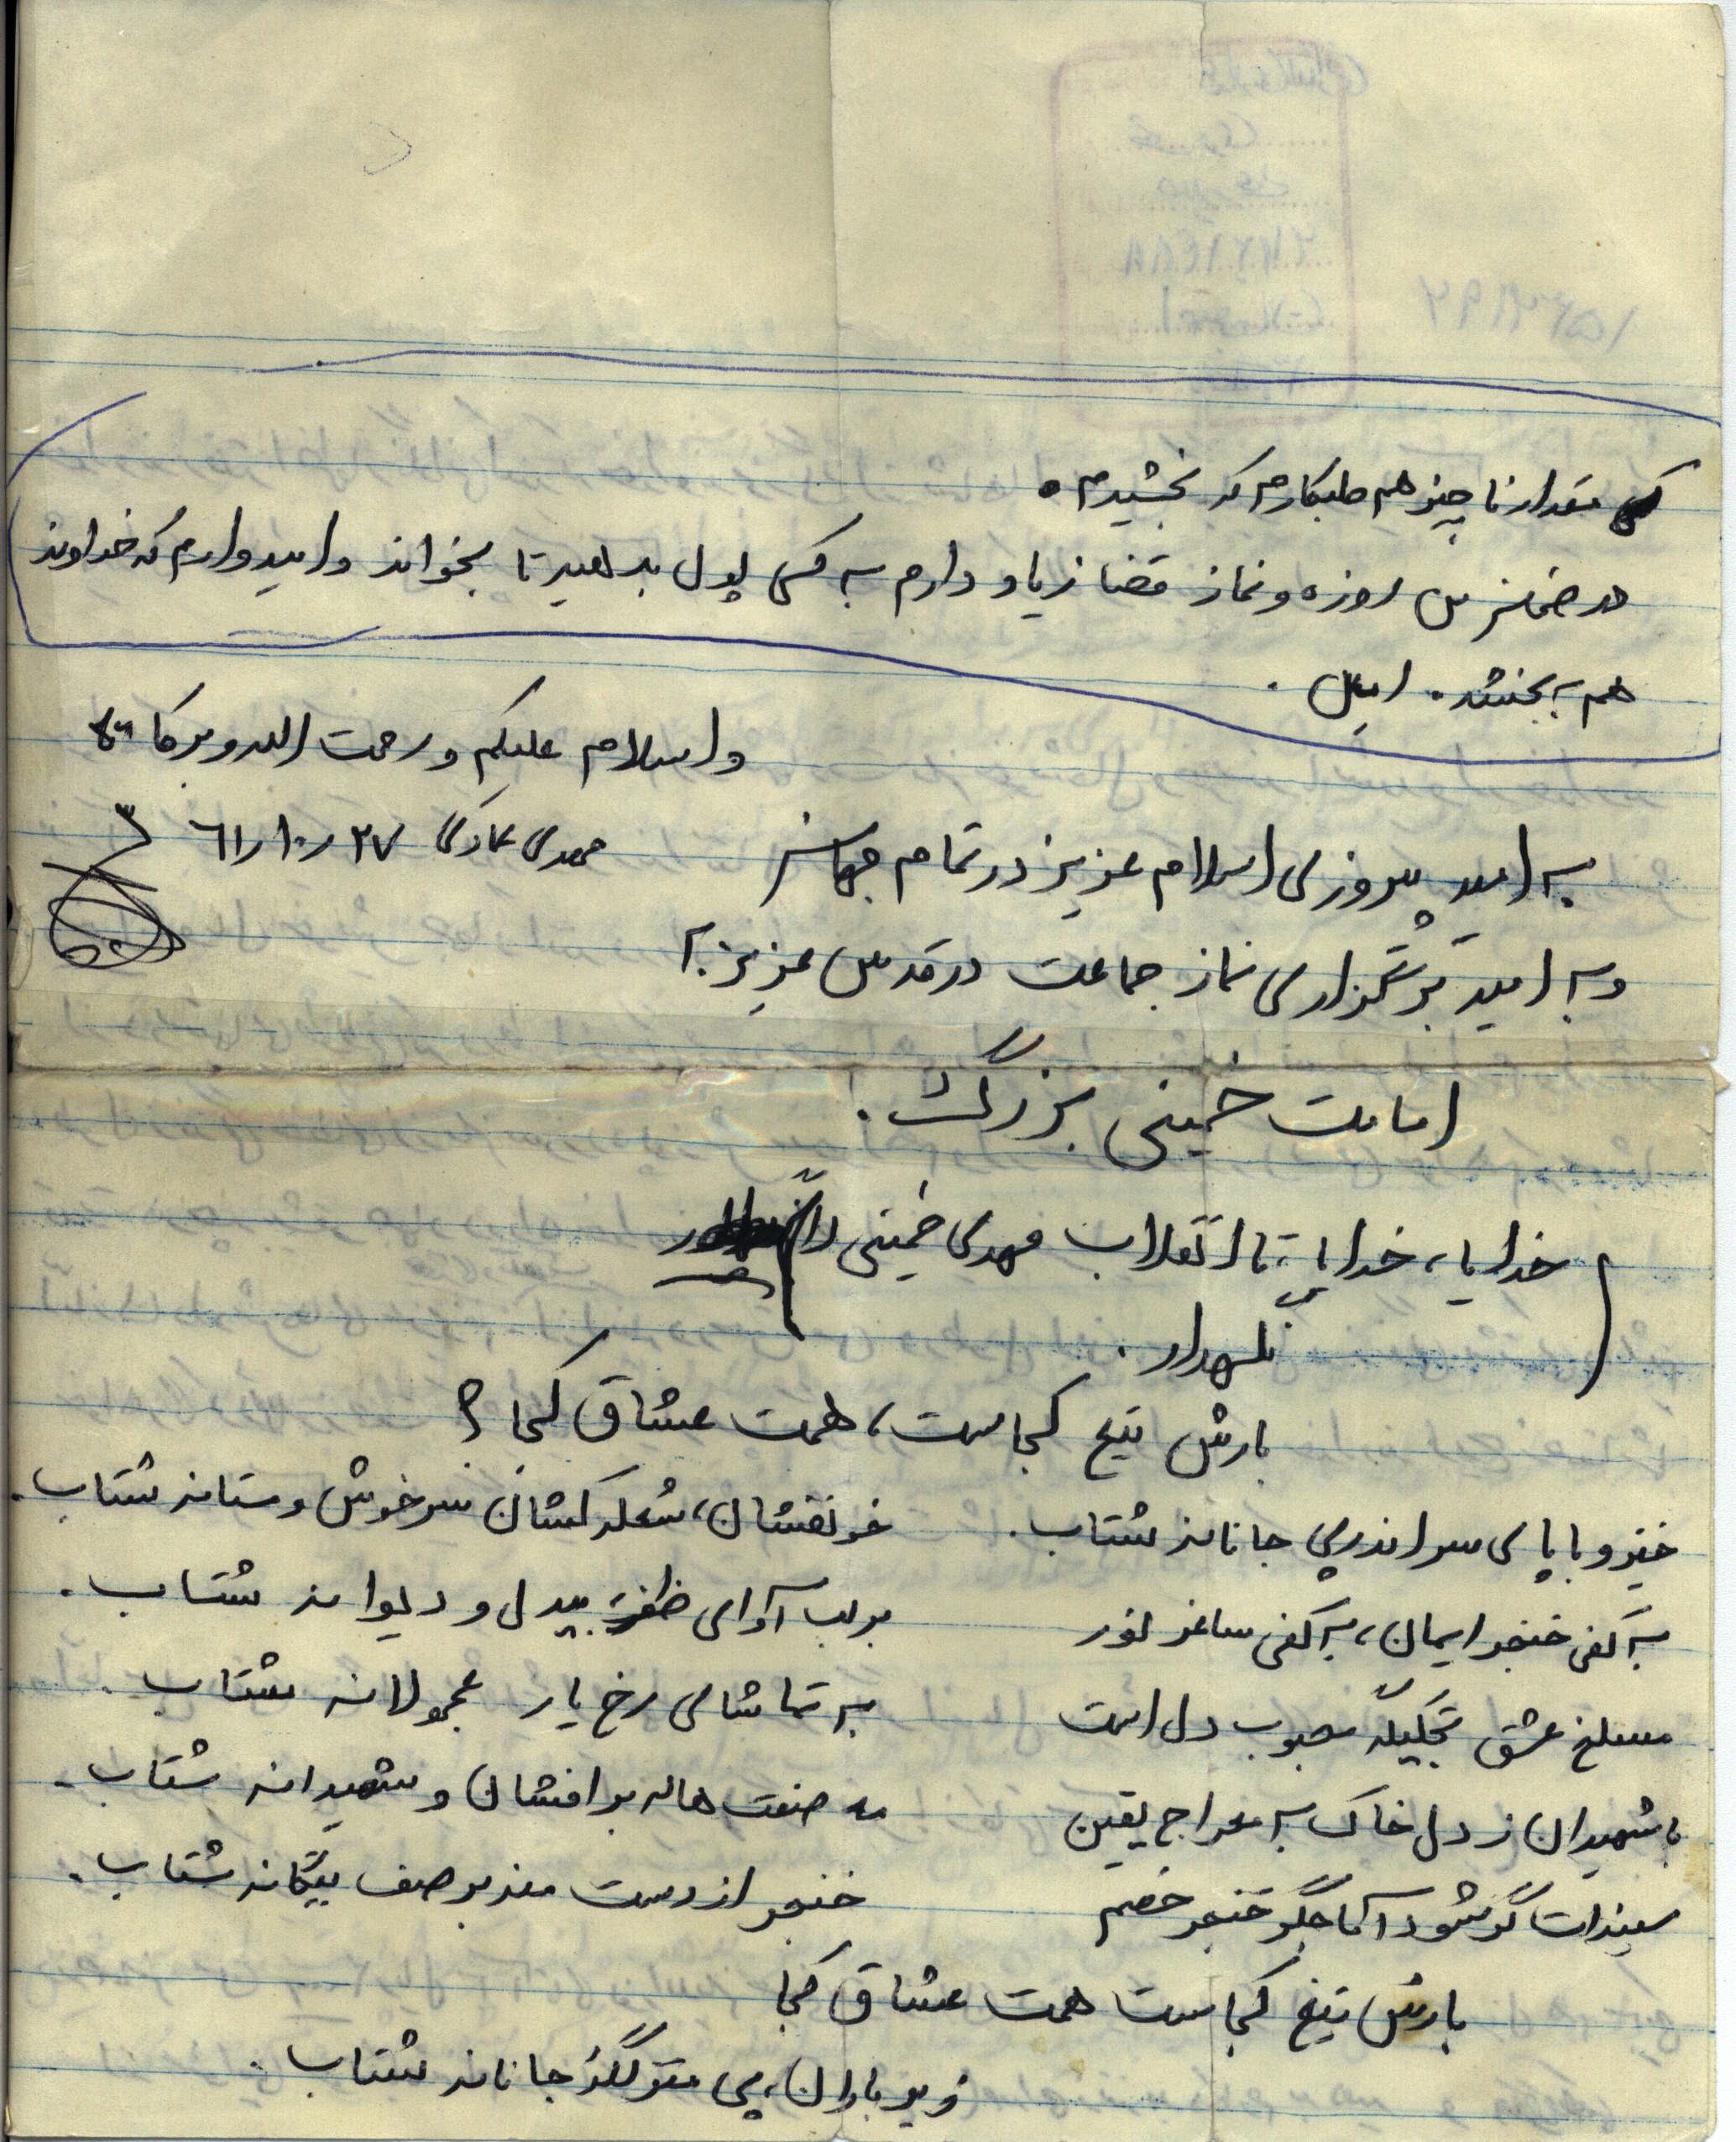 مقدار ناچیز هم طلبکارم که بخشیدم.
در ضمن من روزه و نماز قضا زیاد دارم به کسی پول بدهید تا بخواند و امیدوارم که خداوند
هم به بخشد. امین.
واسلام علیکم و رحمت الله و برکاته
مهدی ۲۷ ر۱۰ ر۶۱
به امید پیروزی اسلام عزیز در تمام جهان
و به امید برگزاری نماز جماعت در قدس عزیز به
امامت خمینی بزرگ.
(خدایا، خدایا، تا انقلاب مهدی خمینی را
نگهدار.
بارش تیغ کجاست، همت عشاق کجا؟
خیز و با پای سر اندر پی جانانه شتاب. خونفشان، شعله کشان سرخوش و مستانه شتاب.
به کفی خنجر ایمان، به کفی ساغر نور بر لب آوای ظفر بیدل و دیوانه شتاب.
مسلخ عشق تجلیگه محبوب دل است به تماشای رخ یار عجولانه شتاب.
با شهیدان ز دل خاک به معراج یقین به صفت هاله بر افشان و شهیدانه شتاب.
سینه‌ات گر شود آماجگر خنجر خصم خنجر از دست منه بر صف بیگانه شتاب.
بارش تیغ کجاست همت عشاق کجا
زیر باران، پی جانانه شتاب.